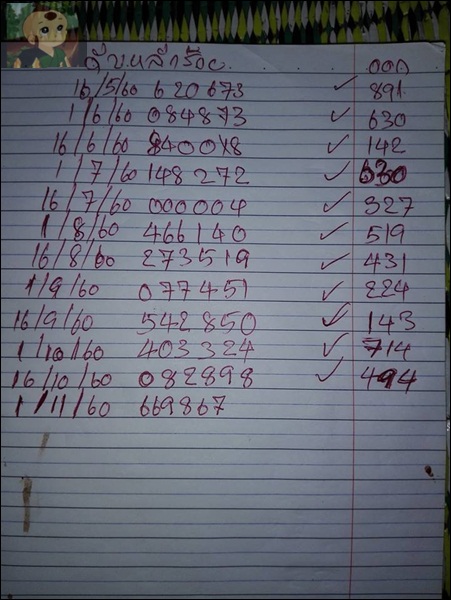 ดับหลักร้อย ออก
16/5/60 620673 ✓ 891
1/6/60 084873 ✓ 630
16/6/60 840018 ✓ 142
1/7/60 148272 ✓ 630
16/7/60 000004 ✓ 327
1/8/60 466140 ✓ 519
16/8/60 273519 ✓ 431
1/9/60 077451 ✓ 224
16/9/60 542850 ✓ 143
1/10/60 403324 ✓ 714
16/10/60 082898 ✓ 494
1/11/60 669867